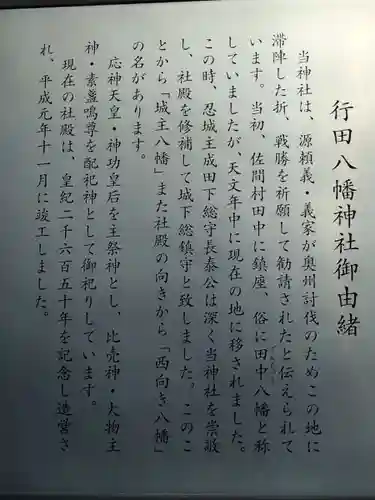 行田八幡神社御由緒
当神社は、源頼義・義家が奥州討伐のためこの地に
滞陣した折、戦勝を祈願して勧請されたと伝えられて
います。当初、佐間村田中に鎮座、俗に田中八幡と称
していましたが、天文年中に現在の地に移されました。
この時、忍城主成田下総守長泰公は深く当神社を崇敬
し、社殿を修補して城下総鎮守と致しました。このこ
とから「城主八幡」また社殿の向きから「西向き八幡」
の名があります。
応神天皇・神功皇后を主祭神とし、比売神・大物主
神・素盞鳴尊を配祀神として御祀りしています。
現在の社殿は、皇紀二千六百五十年を記念し造営さ
れ、平成元年十一月に竣工しました。